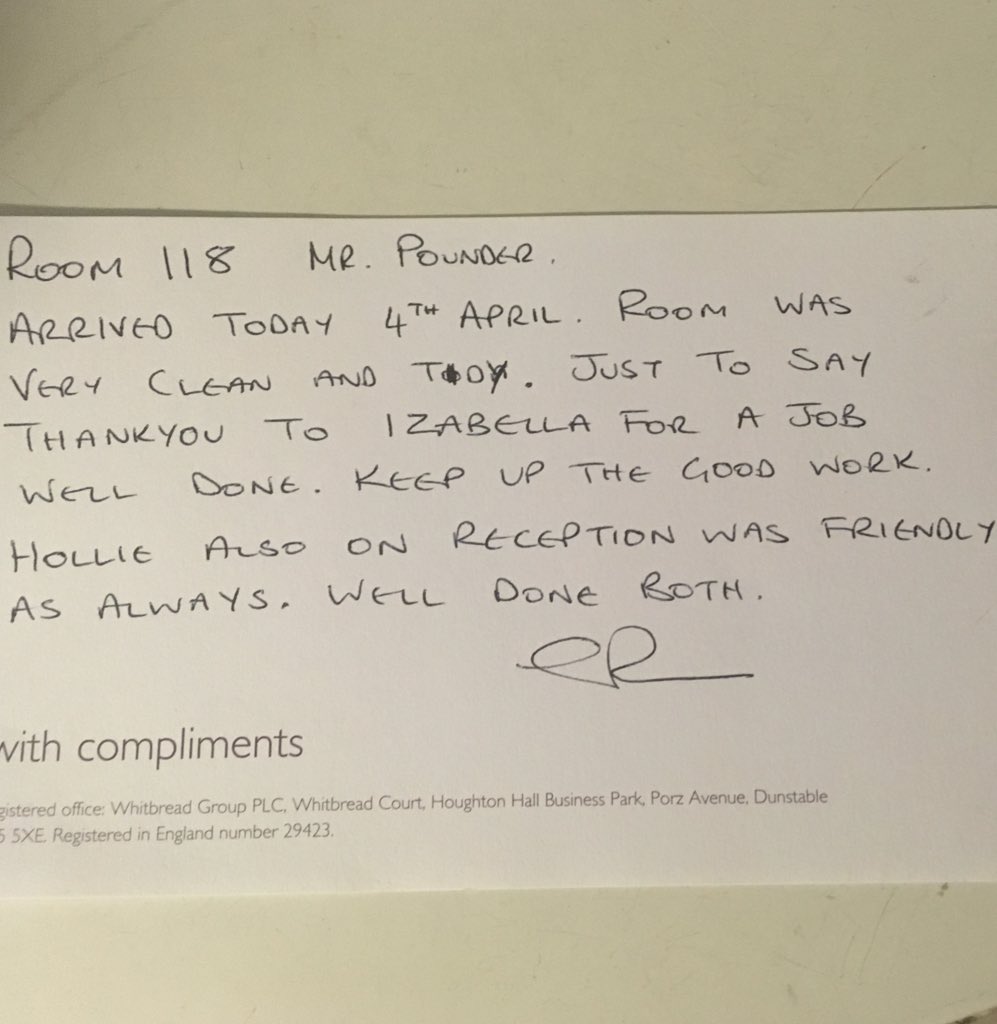 ROOM 118 MR. POUNDER.
ARRIVED TODAY 4TH APRIL. ROOM WAS
VERY CLEAN AND TIDY. JUST TO SAY
THANKYOU TO IZABELLA FOR A JOB
WELL DONE. KEEP UP THE GOOD WORK.
HOLLIE ALSO ON RECEPTION WAS FRIENDLY
AS ALWAYS. WELL DONE BOTH.
with compliments
gistered office: Whitbread Group PLC, Whitbread Court, Houghton Hall Business Park, Porz Avenue, Dunstable
5 5XE. Registered in England number 29423.